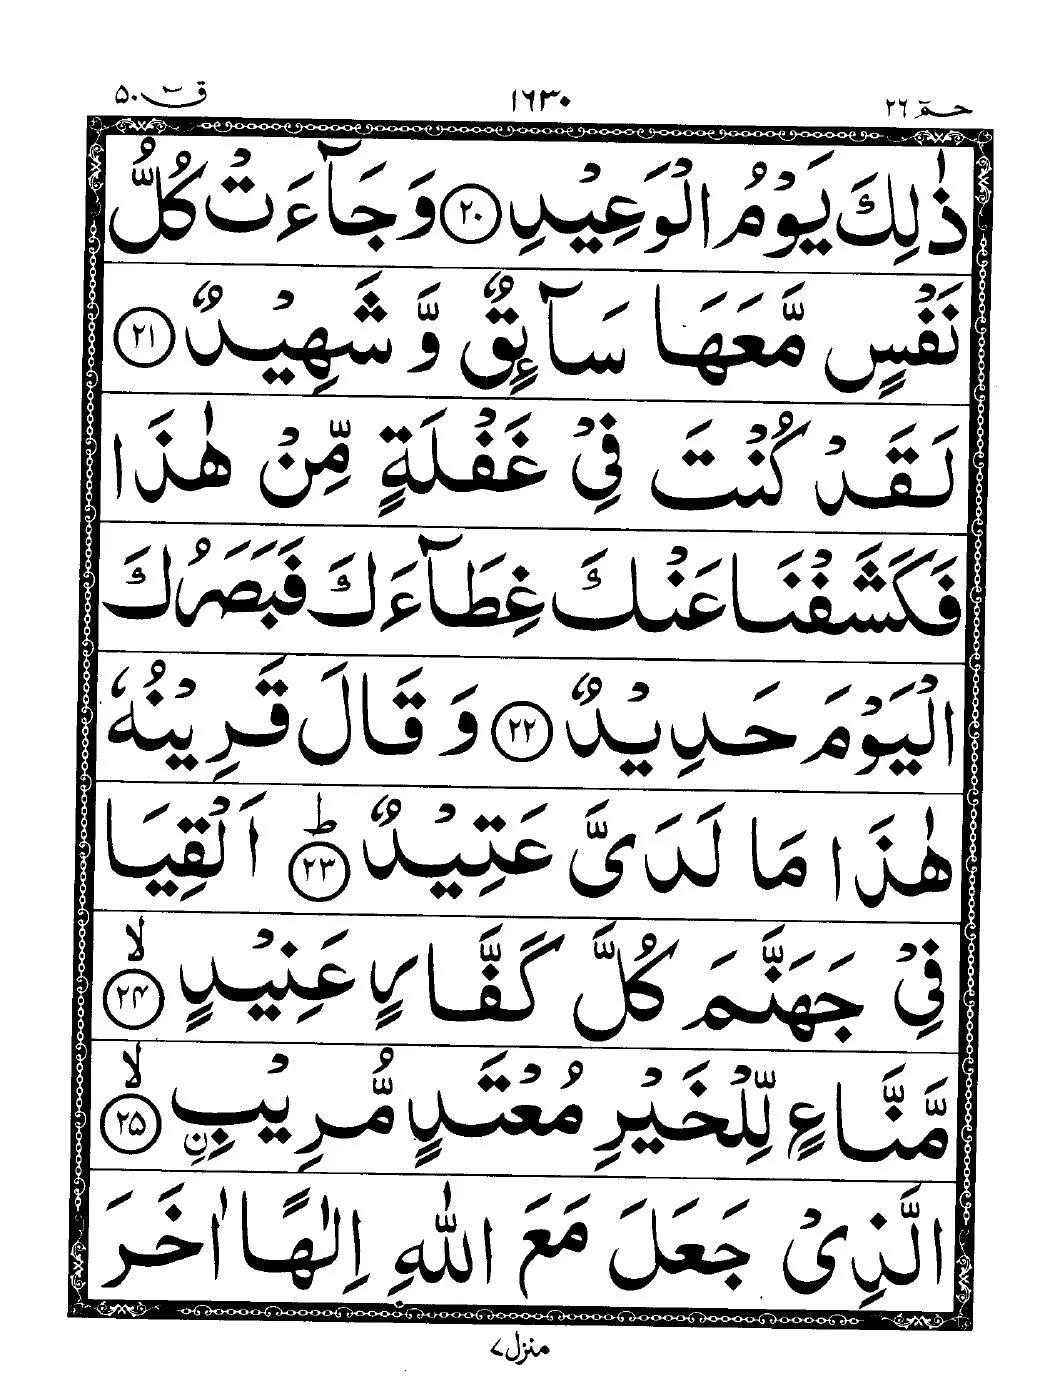 حٰمٓ ٢٦ ١٦٣٠ قٓ ٥٠
ذٰلِكَ يَوْمُ الْوَعِيْدِ ٢٠ وَ جَآءَتْ كُلُّ
نَفْسٍ مَّعَهَا سَآئِقٌ وَّ شَهِيْدٌ ٢١
لَقَدْ كُنْتَ فِيْ غَفْلَةٍ مِّنْ هٰذَا
فَكَشَفْنَا عَنْكَ غِطَآءَكَ فَبَصَرُكَ
الْيَوْمَ حَدِيْدٌ ٢٢ وَ قَالَ قَرِيْنُهٗ
هٰذَا مَا لَدَيَّ عَتِيْدٌ ٢٣ؕ اَلْقِيَا
فِيْ جَهَنَّمَ كُلَّ كَفَّارٍ عَنِيْدٍ ٢٤ۙ
مَّنَّاعٍ لِّلْخَيْرِ مُعْتَدٍ مُّرِيْبِ ِۨ ٢٥ۙ
الَّذِيْ جَعَلَ مَعَ اللّٰهِ اِلٰهًا اٰخَرَ
منزل ٧